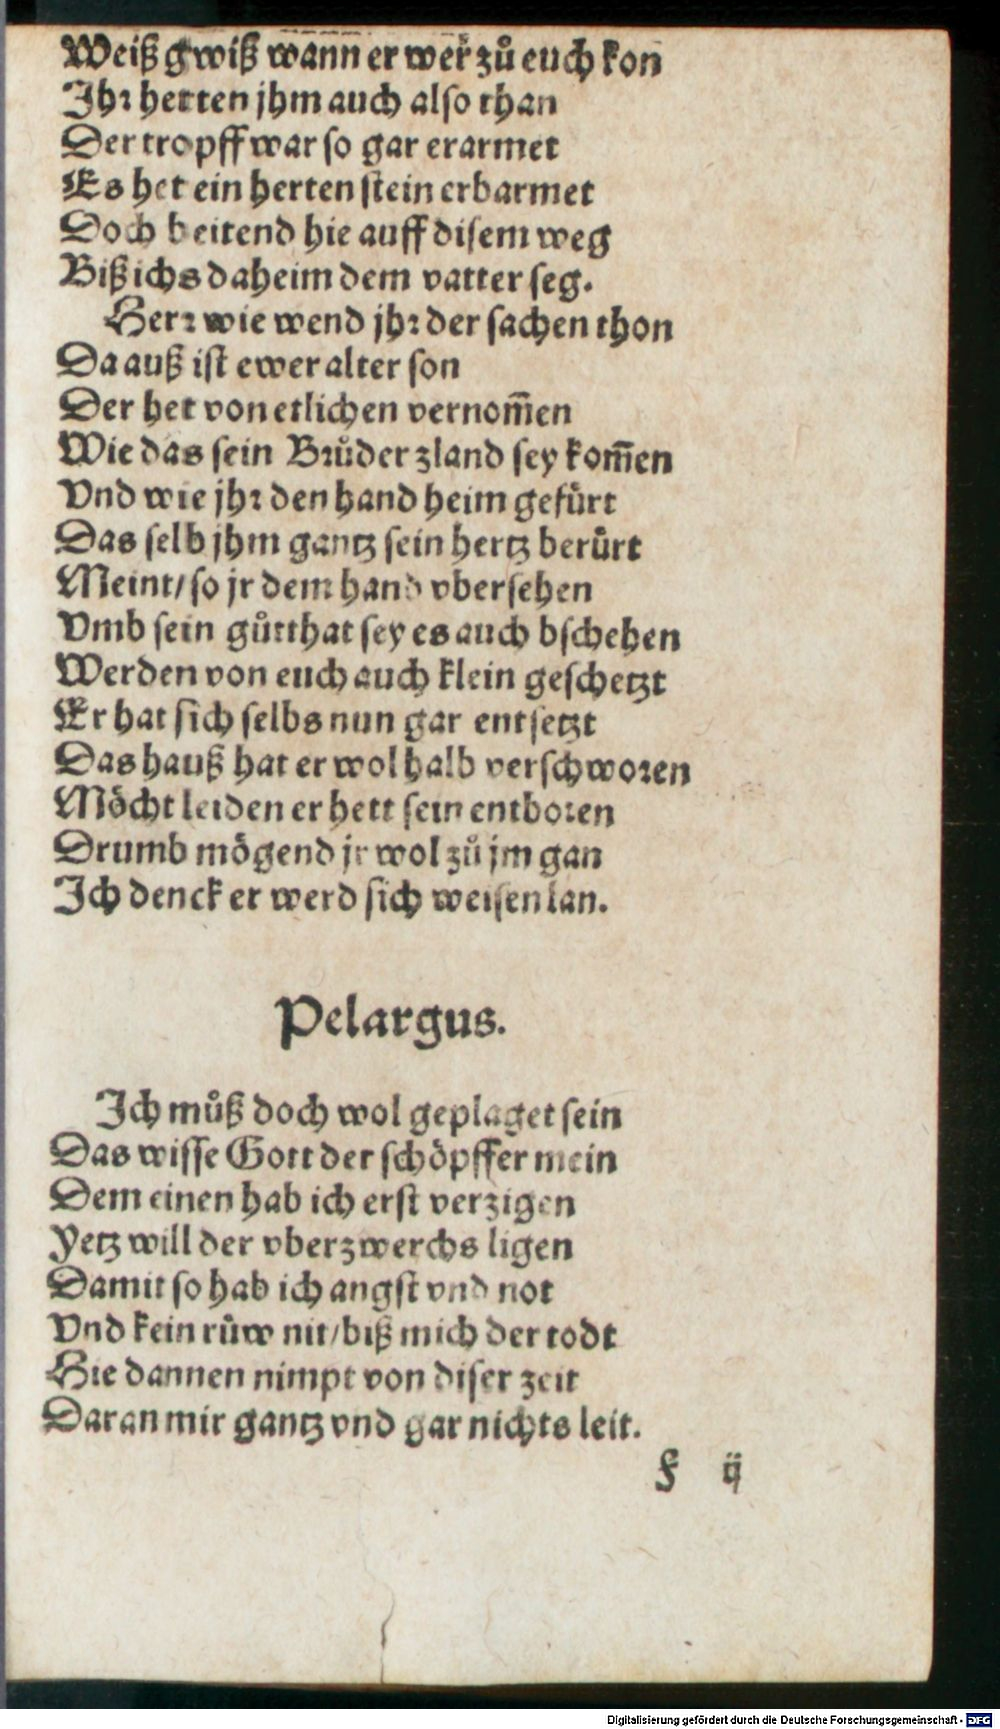 Weiß gwiß wann er wer zů euch kon
Ihr hetten jhm auch also than
Der tropff war so gar erarmet
Es het ein herten stein erbarmet
Doch beitend hie auff disem weg
Biß ichs daheim dem vatter seg.
Herr wie wend jhr der sachen thon
Da auß ist ewer alter son
Der het von etlichen vernom̃en
Wie das sein Brůder zland sey kom̃en
Vnd wie jhr den hand heim gefürt
Das selb jhm gantz sein hertz berürt
Meint/ so jr dem hand vbersehen
Vmb sein gůtthat sey es auch bschehen
Werden von euch auch klein geschetzt
Er hat sich selbs nun gar entsetzt
Das hauß hat er wol halb verschworen
Möcht leiden er hett sein entboren
Drumb mögend jr wol zů jm gan
Ich denck er werd sich weisen lan.
Pelargus.
Ich můß doch wol geplaget sein
Das wisse Gott der schöpffer mein
Dem einen hab ich erst verzigen
Yetz will der vberzwerchs ligen
Damit so hab ich angst vnd not
Vnd kein růw nit/ biß mich der todt
Hie dannen nimpt von diser zeit
Daran mir gantz vnd gar nichts leit.
F ij
Digitalisierung gefördert durch die Deutsche Forschungsgemeinschaft - DFG